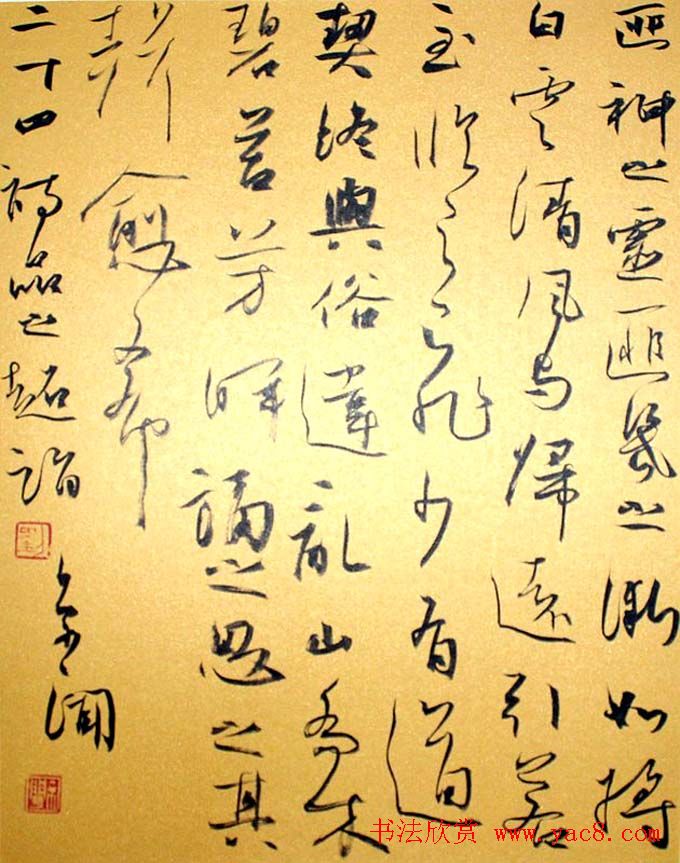 匪神之靈匪幾之微如將
白雲清風与歸遠引若
至臨之已非少有道
契終與俗違亂山喬木
碧苔芳暉誦之思之其
聲愈希
二十四詩品之超詣
书法欣赏 www.yac8.com